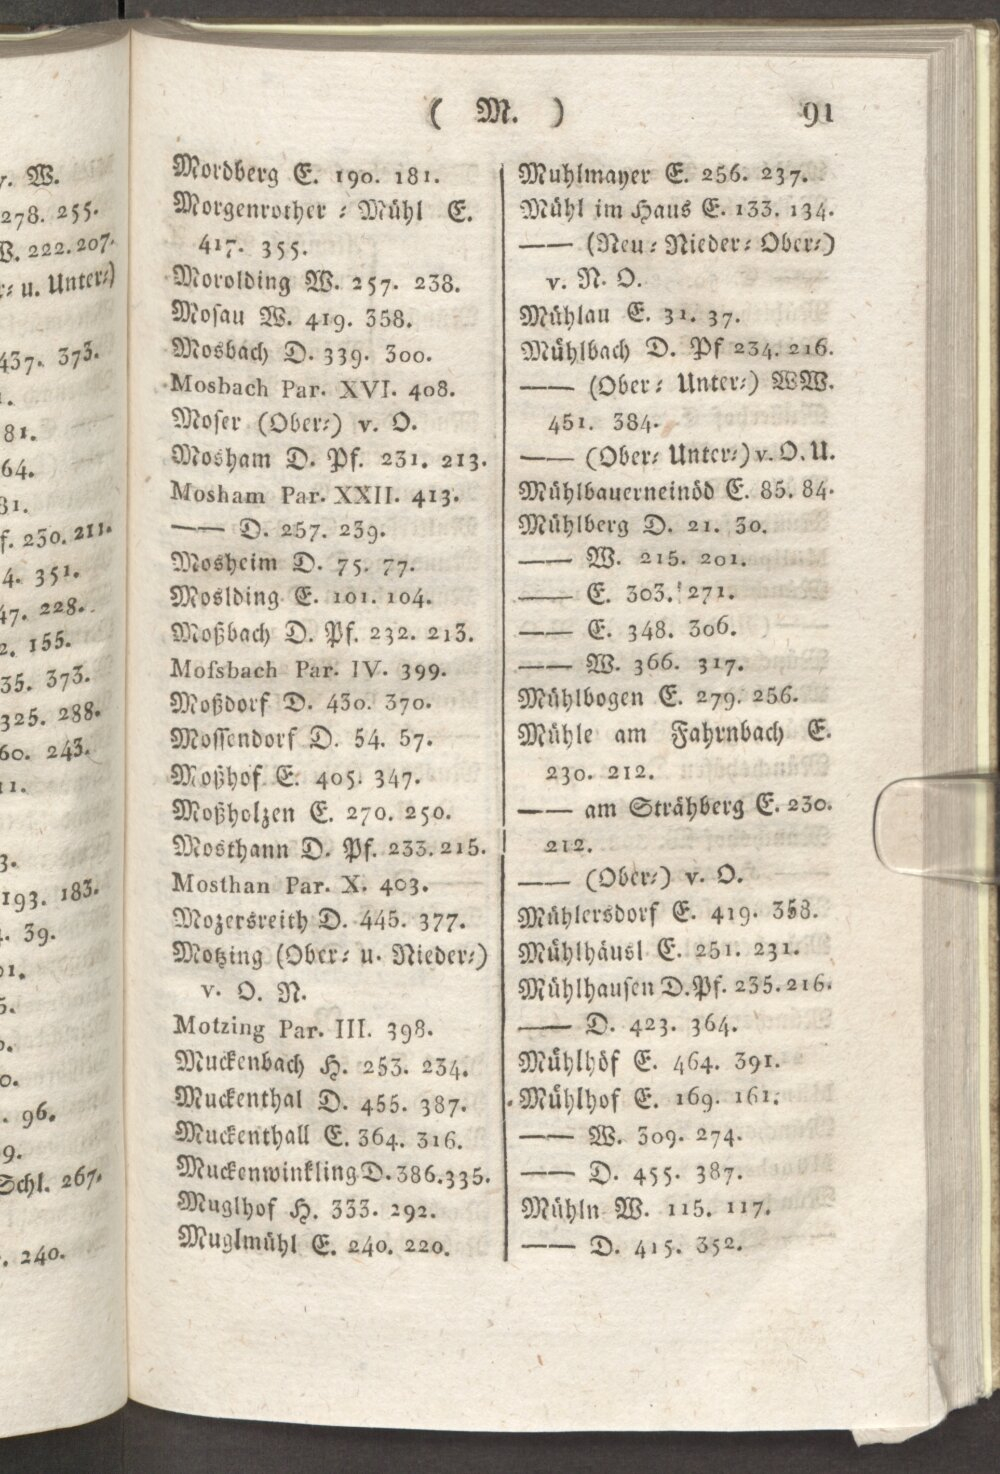 v. W.
278. 255.
W. 222. 207.
r⸗ u. Unter⸗)
437. 373.
81.
64.
81.
f. 230. 211.
4. 351.
47. 228.
2. 155.
35. 373.
325. 288.
60. 243.
11.
3.
193. 183.
. 39.
01.
5.
0.
. 96.
9.
Schl. 267.
. 240.
( M. ) 91
Mordberg E. 190. 181.
Morgenrother ⸗ Mühl E.
417. 355.
Morolding W. 257. 238.
Mosau W. 419. 358.
Mosbach D. 339. 300.
Mosbach Par. XVI. 408.
Moser (Ober⸗) v. O.
Mosham D. Pf. 231. 213.
Mosham Par. XXII. 413.
—— D. 257. 239.
Mosheim D. 75. 77.
Moslding E. 101. 104.
Moßbach D. Pf. 232. 213.
Mofsbach Par. IV. 399.
Moßdorf D. 430. 370.
Mossendorf D. 54. 57.
Moßhof E. 405. 347.
Moßholzen E. 270. 250.
Mosthann D. Pf. 233. 215.
Mosthan Par. X. 403.
Mozersreith D. 445. 377.
Motzing (Ober⸗ u. Nieder⸗)
v. O. N.
Motzing Par. III. 398.
Muckenbach H. 253. 234.
Muckenthal D. 455. 387.
Muckenthall E. 364. 316.
Muckenwinkling D. 386. 335.
Muglhof H. 333. 292.
Muglmühl E. 240. 220.
Muhlmayer E. 256. 237.
Mühl im Haus E. 133. 134.
—— (Neu⸗ Nieder⸗ Ober⸗)
v. N. O.
Mühlau E. 31. 37.
Mühlbach D. Pf 234. 216.
—— (Ober⸗ Unter⸗) WW.
451. 384.
—— (Ober⸗ Unter⸗) v. O. U.
Mühlbauerneinöd E. 85. 84.
Mühlberg D. 21. 30.
—— W. 215. 201.
—— E. 303. 271.
—— E. 348. 306.
—— W. 366. 317.
Mühlbogen E. 279. 256.
Mühle am Fahrnbach E.
230. 212.
—— am Strähberg E. 230.
212.
—— (Ober⸗) v. O.
Mühlersdorf E. 419. 358.
Mühlhäusl E. 251. 231.
Mühlhausen D. Pf. 235. 216.
—— D. 423. 364.
Mühlhöf E. 464. 391.
Mühlhof E. 169. 161.
—— W. 309. 274.
—— D. 455. 387.
Mühln W. 115. 117.
—— D. 415. 352.